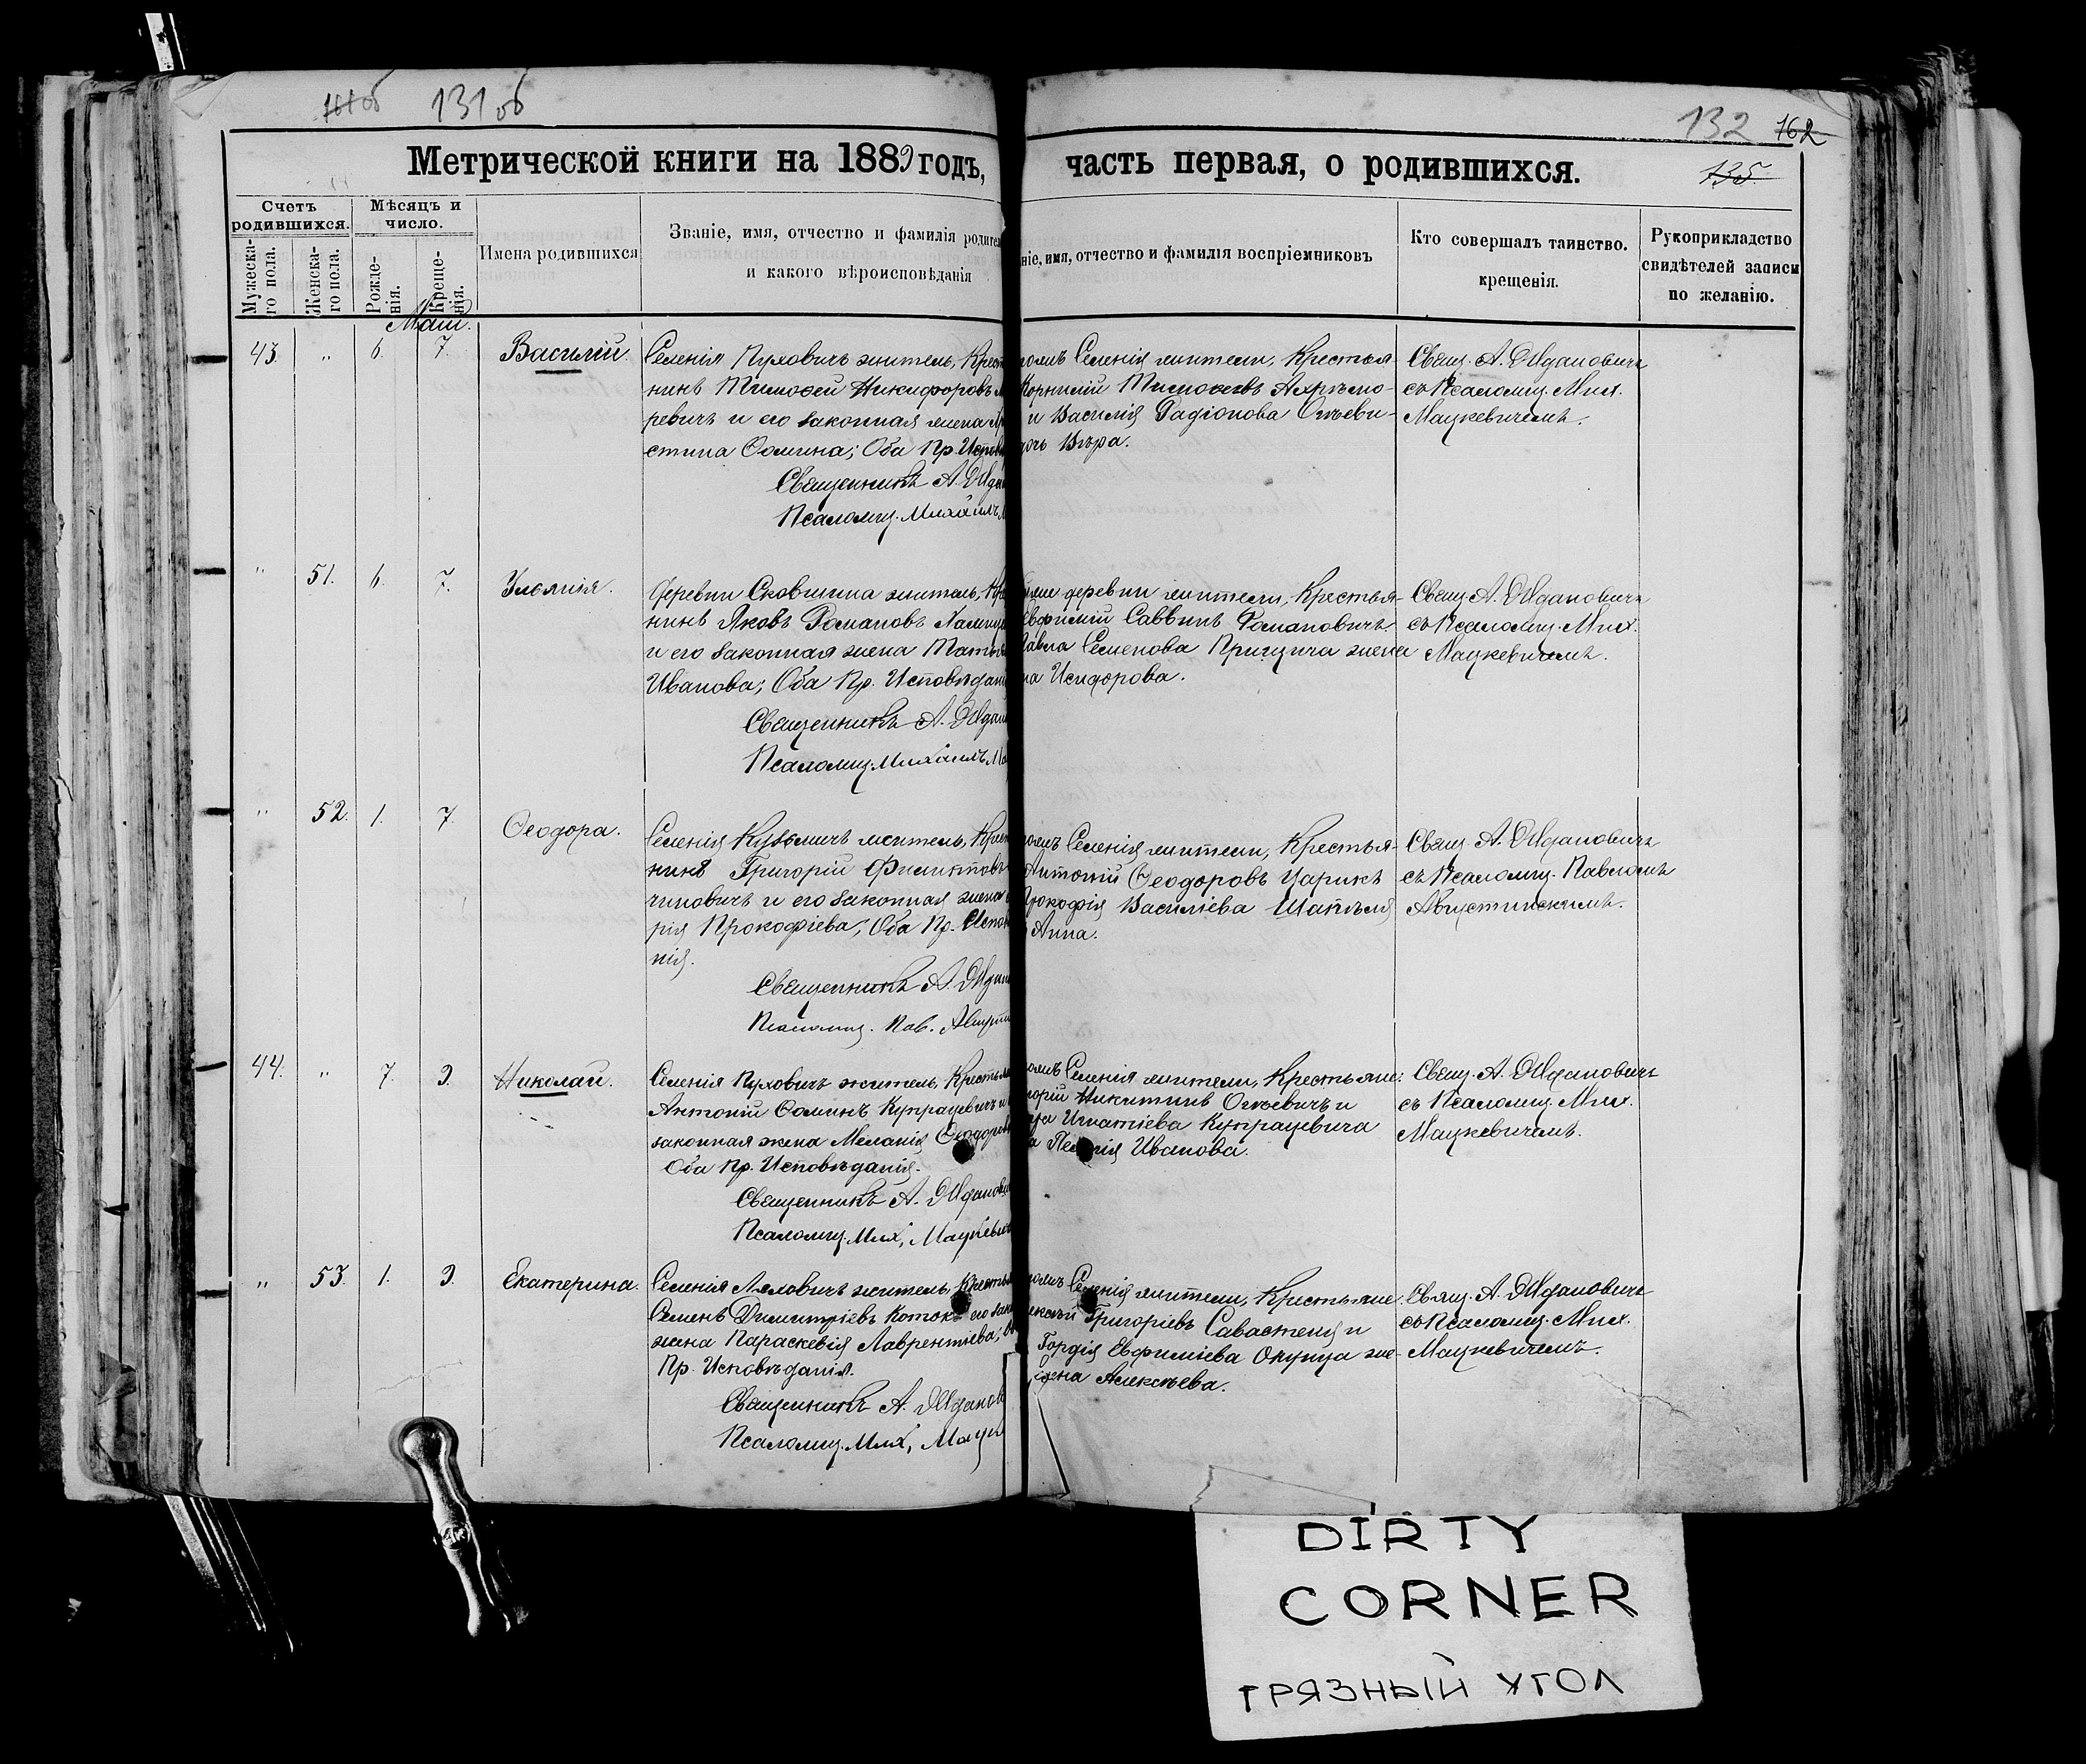 131 об
132 162
135
Метрической книги на 1889 годъ,
часть первая, о родившихся.
Счетъ родившихся.
Мѣсяцъ и число.
Мужеска-го пола.
Женска-го пола.
Рожде-нія.
Креще-нія.
Имена родившихся
Званіе, имя, отчество и фамилія родител
и какого вѣроисповѣданія
ніе, имя, отчество и фамилія воспріемниковъ
Кто совершалъ таинство.
крещенія.
Рукоприкладство
свидѣтелей записи
по желанію.
Маій.
43. " 6. 7. Василій.
Селенія Пуховичъ житель, Крест
нинъ Тимоѳей Никифоровъ
ревичъ и его законная жена
стина Ѳомина; Оба Пр. Испов
Священникъ А. Ждан
Псаломщ. Михаилъ
Селенія жители, Крестья-
Корнилій Тимоѳеевъ
и Василія Радіонова
дочь Вѣра.
Свящ. А. Ждановичъ
съ Псаломщ. Мих.
Мацкевичемъ.
" 51. 6. 7. Улѳянія.
Деревни Сковшина житель, Кре
нинъ Яковъ Романовъ
и его законная жена Татья
Иванова; Оба Пр. Исповѣдан
Священникъ А. Ждан
Псаломщ. Михаилъ Ма
деревни жители, Крестья-
Евфимій Саввинъ Романовичъ
Павла Семенова Прищича жена
на Исидорова.
Свящ. А. Ждановичъ
съ Псаломщ. Мих.
Мацкевичемъ.
" 52. 1. 7. Ѳеодора.
Селенія Кузьмичъ житель, Крест
нинъ Григорій Филиповъ
чиновичъ и его законная жена
рія Прокофіева; Оба Пр. Испов
нія.
Священникъ А. Ждан
Псаломщ. Пав. Август
Селенія жители, Крестья-
Антоній Ѳеодоровъ Царикъ
Прокофія Василіева
Анна.
Свящ. А. Ждановичъ
съ Псаломщ. Павломъ
Августинскимъ.
44. " 7. 9. Николай.
Селенія Пуховичъ житель, Крестья
Антоній Ѳоминъ Купрацевичъ и
законная жена Меланія Ѳеодоров
Оба Пр. Исповѣданія.
Священникъ А. Жданови
Псаломщ. Мих. Мацкевич
Селенія жители, Крестьяне:
Никитинъ Олѣевичъ и
Игнатіева Купрацевича
Иванова.
Свящ. А. Ждановичъ
съ Псаломщ. Мих.
Мацкевичемъ.
" 53. 1. 9. Екатерина.
Селенія Ляховичъ житель, Крестья
Семенъ Димитріевъ Котокъ его зак
жена Параскевія Лаврентіева;
Пр. Исповѣданія.
Священникъ А. Жданов
Псаломщ. Мих. Мацк
Селенія жители, Крестьяне:
Григоріевъ Савастеня и
Гордія Евфиміева Окунца же-
Алексѣева.
Свящ. А. Ждановичъ
съ Псаломщ. Мих.
Мацкевичемъ.
DIRTY
CORNER
ГРЯЗНЫЙ УГОЛ